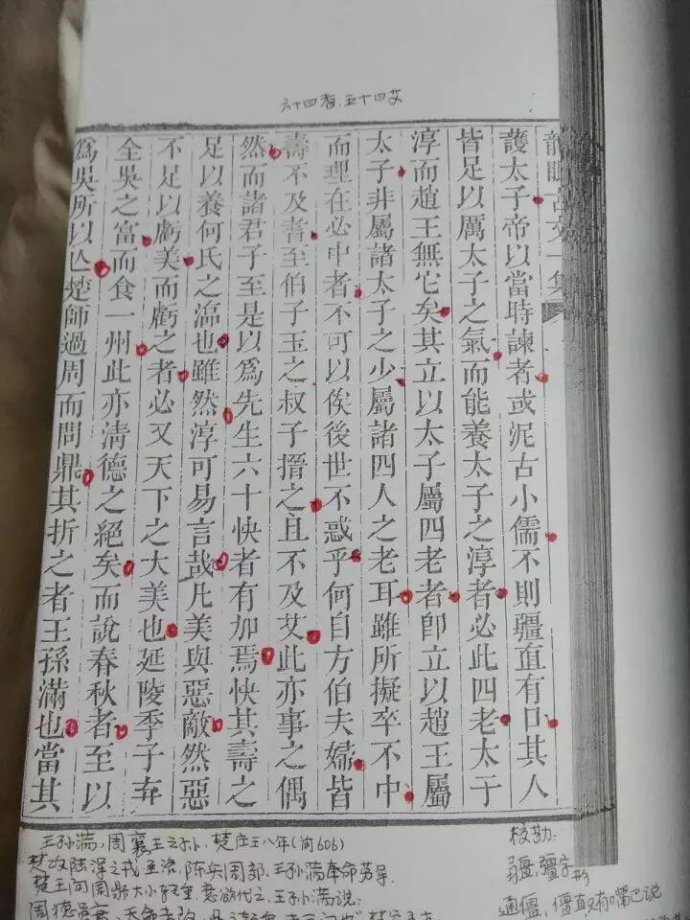 六十四耆、五十四艾
龍眠古文一集
護太子帝以當時諫者或泥古小儒不則疆直有口其人
皆足以厲太子之氣而能養太子之淳者必此四老太子
淳而趙王無它矣其立以太子屬四老者卽立以趙王屬
太子非屬諸太子之少屬諸四人之老耳雖所擬卒不中
而理在必中者不可以俟後世不惑乎何自方伯夫婦皆
壽不及耆至伯子玉之叔子搢之且不及艾此亦事之偶
然而諸君子至是以爲先生六十快者有加焉快其壽之
足以養何氏之也雖然淳可易言哉凡美與惡敵然惡
不足以虧美而虧之者必又天下之大美也延陵季子弃
全吳之富而食一州此亦清德之絕矣而說春秋者至以
爲吳所以亾楚師過周而問鼎其折之者王孫滿也當其
王孙满,周襄王之孙、楚庄王八年(前606)
楚攻陆浑之戎至洛,陈兵周郊,王孙满奉命劳
楚王问周鼎大小轻重,意欲代之,王孙满说:
周德虽衰,天命未改,
校勘:
疆,彊字